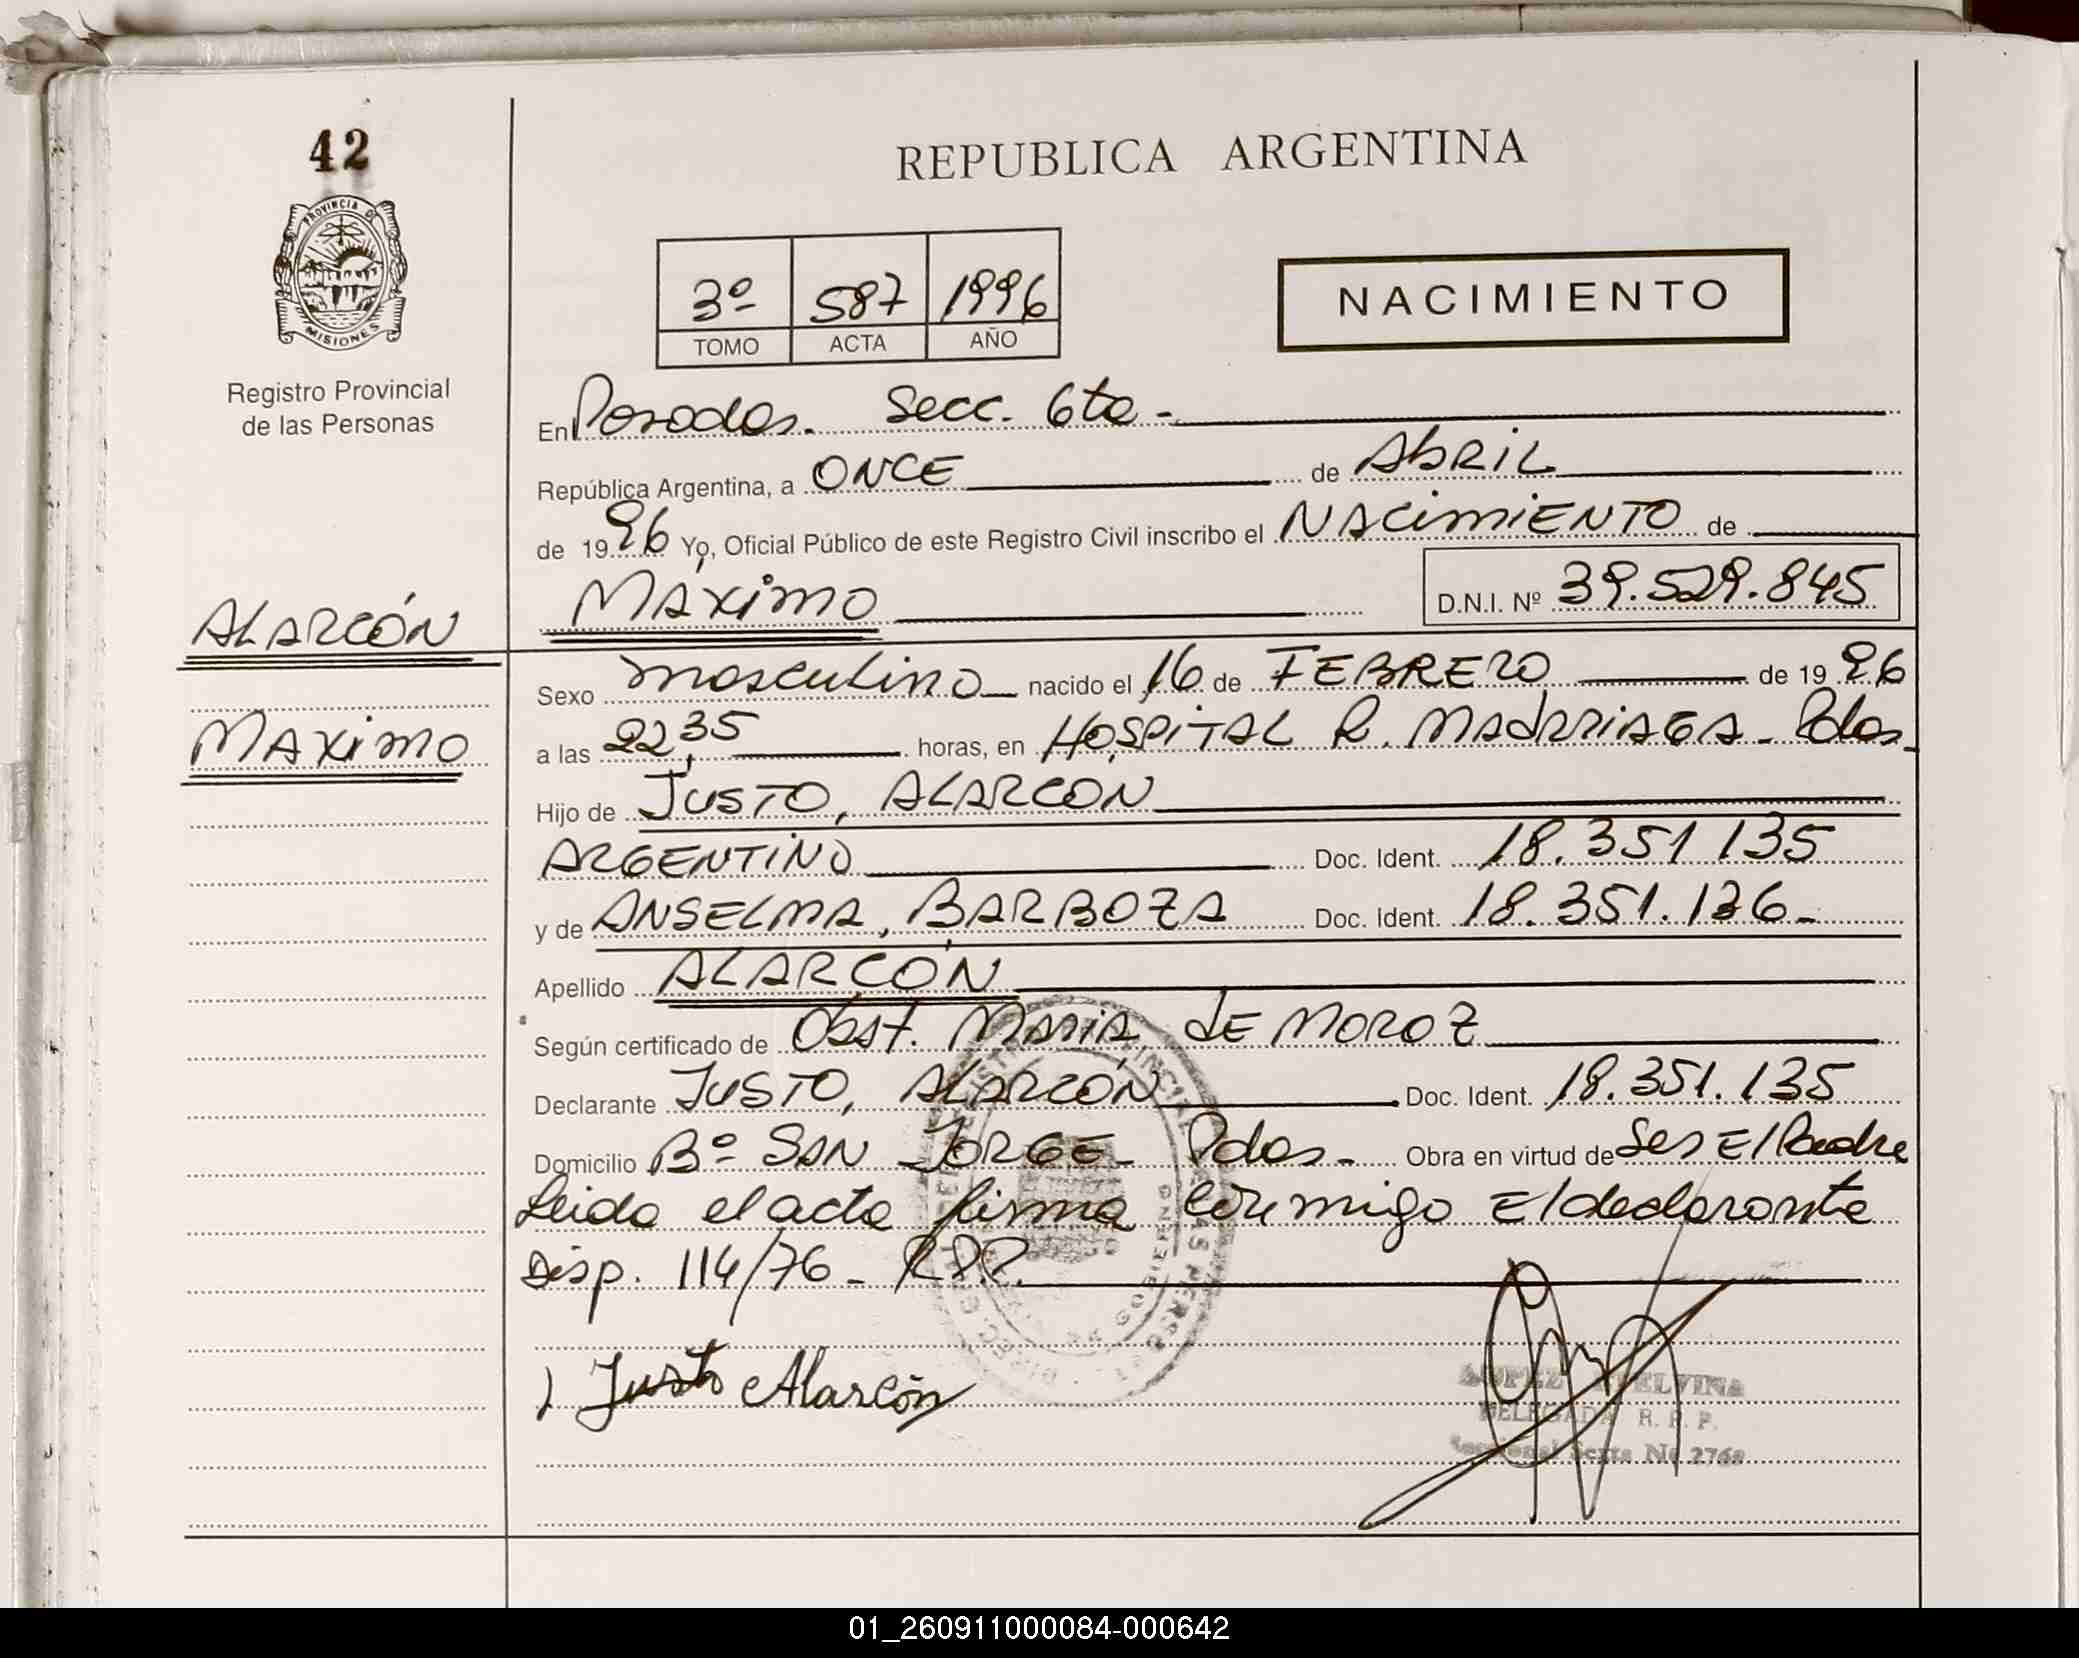 42
PROVINCIA DE
MISIONES
Registro Provincial
de las Personas
ALARCÓN
MAXIMO
REPUBLICA ARGENTINA
3º 587 1996
TOMO ACTA AÑO
NACIMIENTO
En Posadas. Secc. 6ta -
República Argentina, a ONCE de AbRIL
de 1996 Yo, Oficial Público de este Registro Civil inscribo el NACimiENTO de
MÁXimO D.N.I. Nº 39.529.845
Sexo masculino nacido el 16 de FEBRERO de 1996
a las 22,35 horas, en HOSPITAL R. MADARIAGA - Pdas.
Hijo de JUSTO, ALARCON
ARGENTINO Doc. Ident. 18.351 135
y de ANSELMA, BARBOZA Doc. Ident. 18.351.136 -
Apellido ALARCÓN
Según certificado de Obst. MARIA dE MOROZ
Declarante JUSTO, ALARCÓN Doc. Ident. 18.351.135
Domicilio Bº SAN JORGE - Pdas - Obra en virtud de Ser El Padre
Leida el acta firma conmigo El declarante
Disp. 114/76 - R.P.P.
) Justo Alarcón
LOPEZ ETELVINA
DELEGADA R. P. P.
Seccional Sexta Nº 2768
01_260911000084-000642